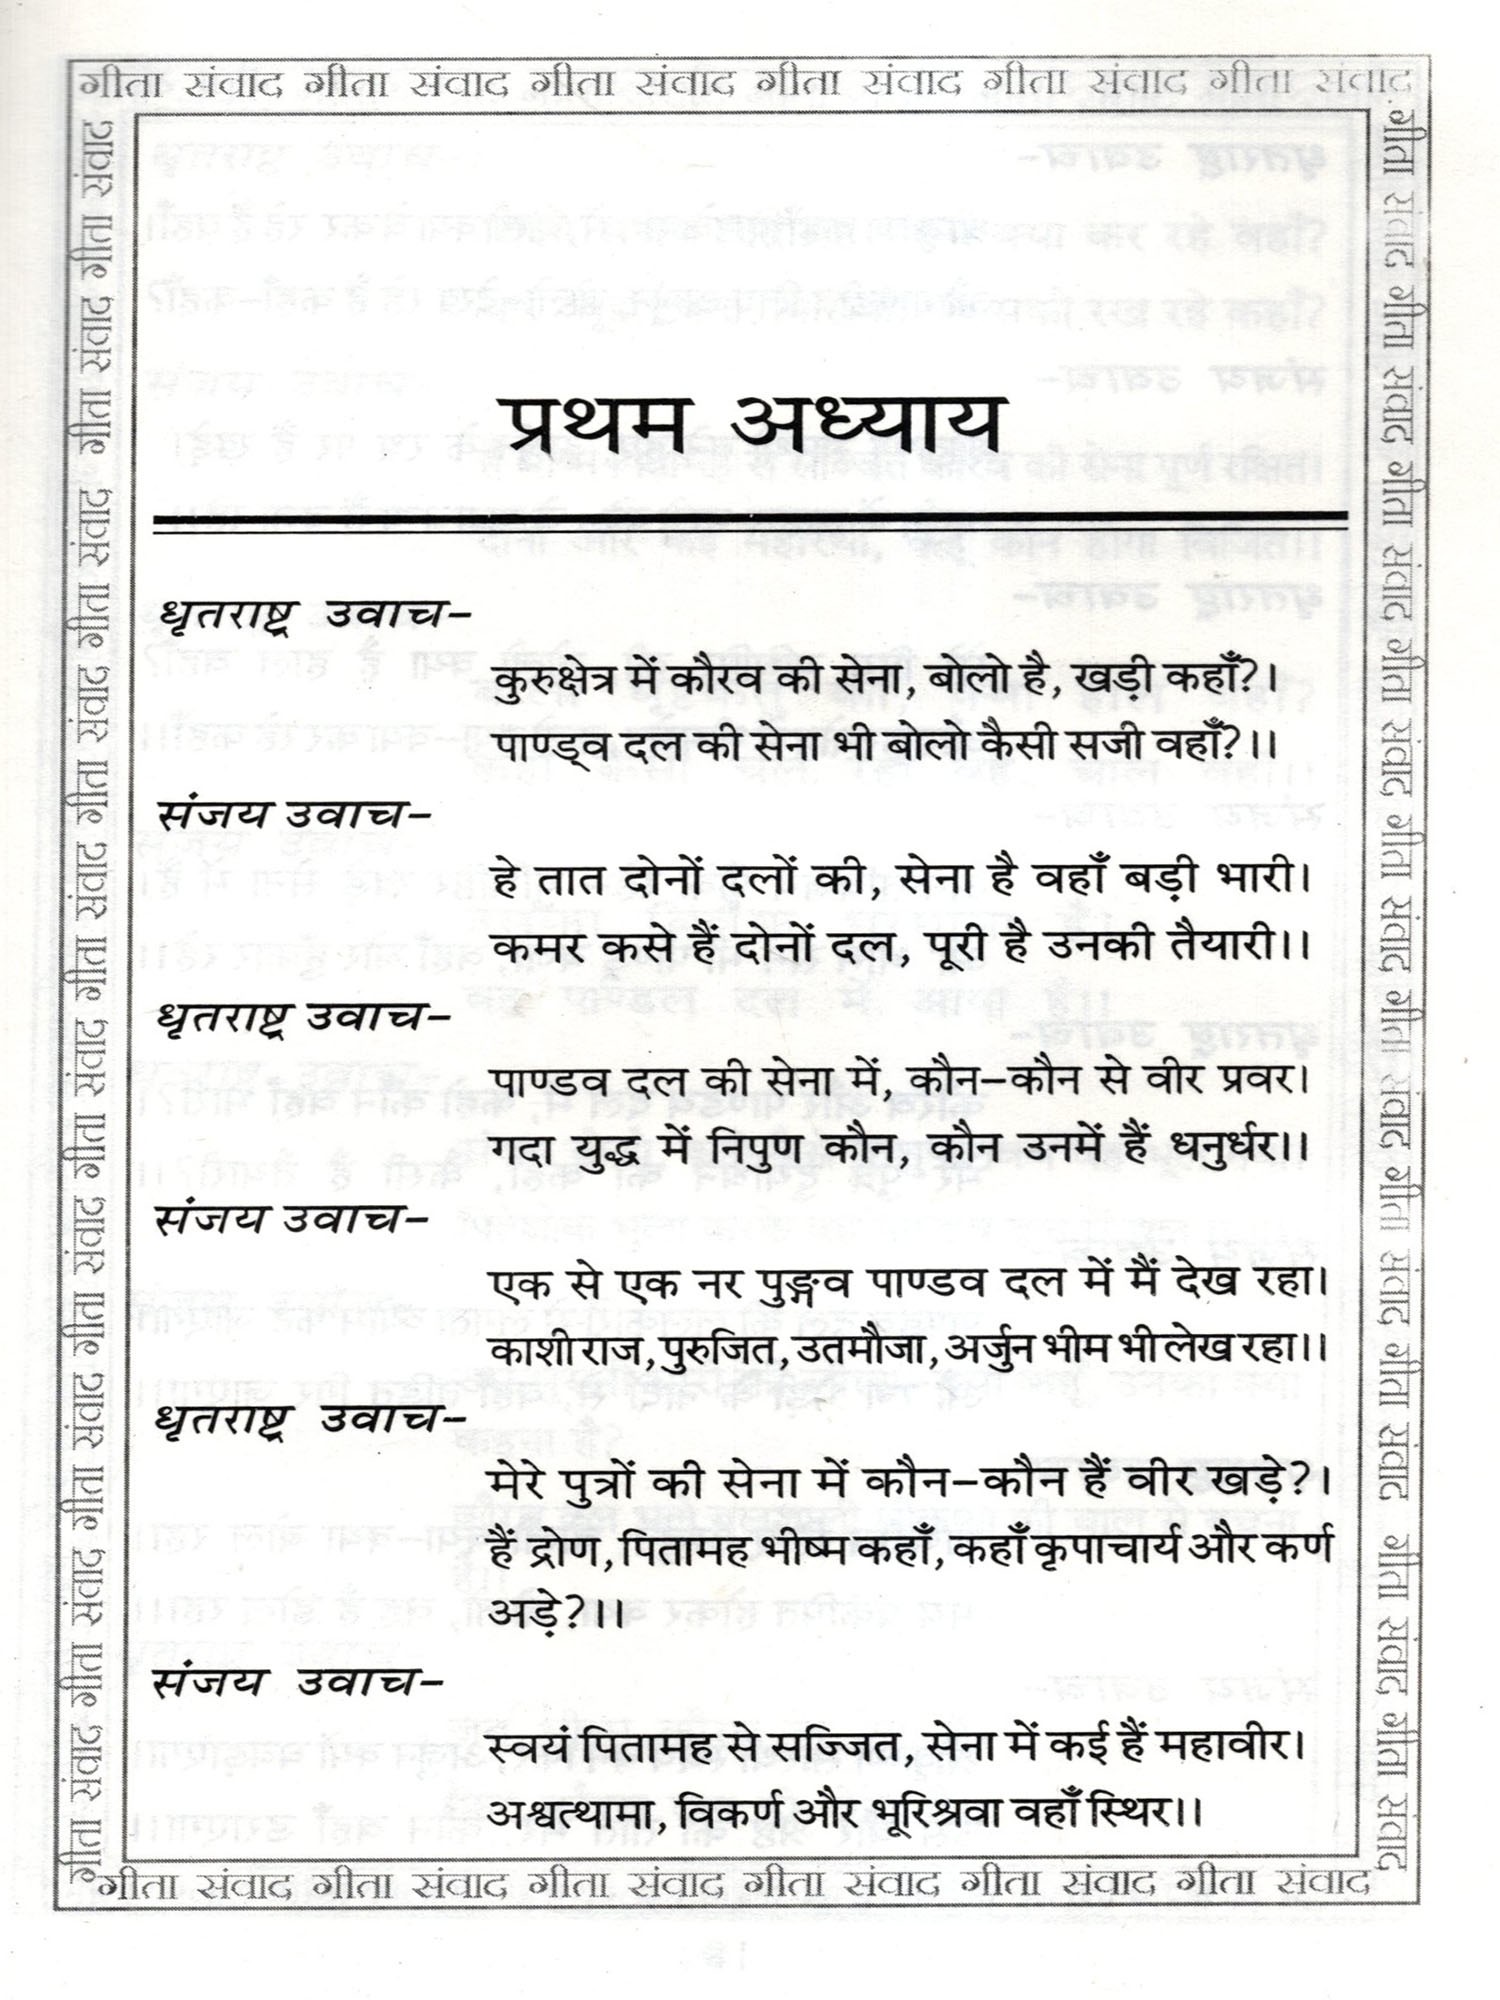 गीता संवाद गीता संवाद गीता संवाद गीता संवाद गीता संवाद गीता संवाद
प्रथम अध्याय
धृतराष्ट्र उवाच–
कुरुक्षेत्र में कौरव की सेना, बोलो है, खड़ी कहाँ?।
पाण्ड्व दल की सेना भी बोलो कैसी सजी वहाँ?।।
संजय उवाच–
हे तात दोनों दलों की, सेना है वहाँ बड़ी भारी।
कमर कसे हैं दोनों दल, पूरी है उनकी तैयारी।।
धृतराष्ट्र उवाच–
पाण्डव दल की सेना में, कौन–कौन से वीर प्रवर।
गदा युद्ध में निपुण कौन, कौन उनमें हैं धनुर्धर।।
संजय उवाच–
एक से एक नर पुङ्गव पाण्डव दल में मैं देख रहा।
काशी राज, पुरुजित, उतमौजा, अर्जुन भीम भी लेख रहा।।
धृतराष्ट्र उवाच–
मेरे पुत्रों की सेना में कौन–कौन हैं वीर खड़े?।
हैं द्रोण, पितामह भीष्म कहाँ, कहाँ कृपाचार्य और कर्ण
अड़े?।।
संजय उवाच–
स्वयं पितामह से सज्जित, सेना में कई हैं महावीर।
अश्वत्थामा, विकर्ण और भूरिश्रवा वहाँ स्थिर।।
गीता संवाद गीता संवाद गीता संवाद गीता संवाद गीता संवाद गीता संवाद
गीता संवाद गीता संवाद गीता संवाद गीता संवाद गीता संवाद गीता संवाद गीता संवाद गीता संवाद गीता संवाद गीता संवाद
गीता संवाद गीता संवाद गीता संवाद गीता संवाद गीता संवाद गीता संवाद गीता संवाद गीता संवाद गीता संवाद गीता संवाद